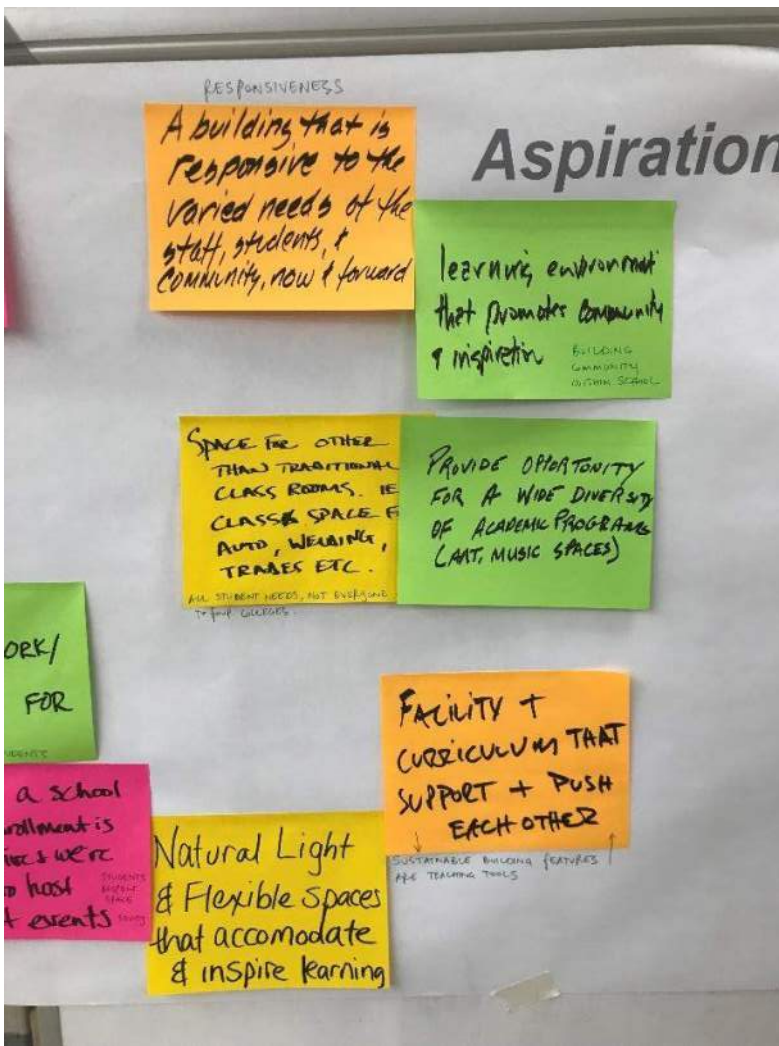 RESPONSIVENESS
A building that is
responsive to the
varied needs of the
staff, students, &
community, now & forward
Aspiration
learning environment
that promotes community
& inspiration
BUILDING
COMMUNITY
WITHIN SCHOOL
SPACE FOR OTHER
THAN TRADITIONAL
CLASS ROOMS. IE
CLASS SPACE F
AUTO, WELDING,
TRADES ETC.
ALL STUDENT NEEDS, NOT EVERYONE
COLLEGES.
PROVIDE OPPORTUNITY
FOR A WIDE DIVERSITY
OF ACADEMIC PROGRAMS
(ART, MUSIC SPACES)
ORK/
FOR
UDENTS
FACILITY +
CURRICULUM THAT
SUPPORT + PUSH
EACH OTHER
SUSTAINABLE BUILDING FEATURES
ARE TEACHING TOOLS
a school
rollment is
were
host
events
STUDENTS
SPACE
Natural Light
& Flexible Spaces
that accomodate
& inspire learning